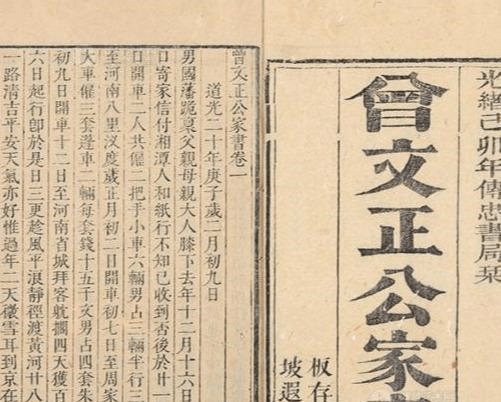 光緒己卯年傳忠書局栞
曾文正公家
板存
坡遐
曾文正公家書卷一
道光二十年庚子歲二月初九日
男國藩跪稟父親母親大人膝下去年十二月十六日
日寄家信付湘潭人和紙行不知已收到否後於廿一
日開車二人共僱二把手小車六輛男占三輛半行三
至河南八里汊度歲正月初二日開車初七日至周家
大車僱三套篷車二輛每套錢十五千文男占四套朱
初九日開車十二日至河南省城拜客躭擱四天獲百
六日起行卽於是日三更趁風平浪靜徑渡黃河廿八
一路清吉平安天氣亦好惟過年二天微雪耳到京在